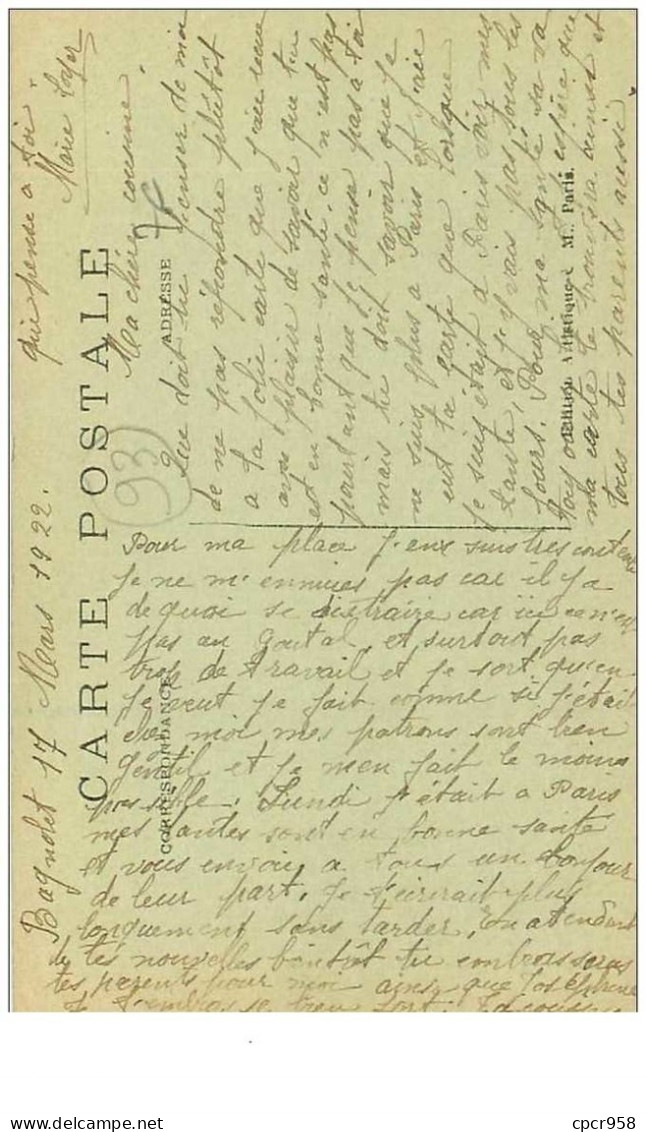 Bagnolet 17 Mars 1922.
CARTE POSTALE
CORRESPONDANCE
ADRESSE
93
Ma chère cousine
Que doit tu penser de moi
de ne pas répondre plutôt
a ta jolie carte que j'aie recue
avec plaisir de savoir que tu
est en bonne santé. ce n'est pas
pourtant que je pense pas a toi
mais tu doit savoir que je
ne suis plus a Paris et j'aie
eut ta carte que lorsque
je suis était a Paris voir mes
tante, et j'y vais pas tous les
jours. Pour ma santé sa va
toujours et j'espère que
ma carte te trouvera ainsi et
tous tes parents aussi
Edition Artistique M. Paris.
Pour ma place j'en suis tres contente
je ne m'ennuies pas car il y a
de quoi se distraire car ici ce n'est
pas au et surtout pas
trop de travail et je sort quen
je veut je fait comme si j'était
chez moi mes patrons sont bien
gentil et je men fait le moins
possible. Lundi j'était a Paris
mes tantes sont en bonne santé
et vous envoie a tous un bonjour
de leur part. Je t'écrirait plus
longuement sans tarder. En atendant
de tes nouvelles bientôt tu embrasseras
tes parents pour moi ainsi que Joséphine
Je t'embrasse bien fort. Ta cousine
qui pense a toi.
Marie
cpcr958